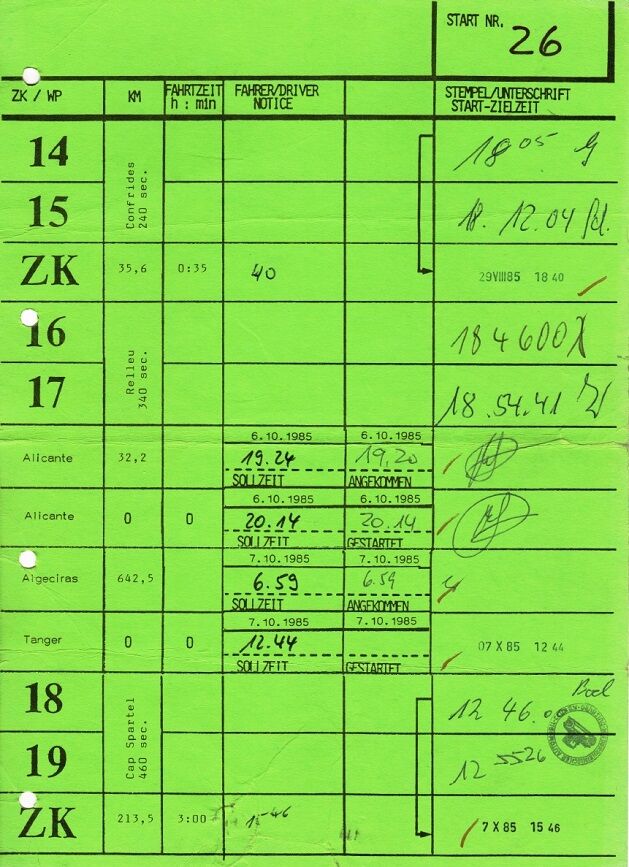 START NR. 26
ZK / WP KM FAHRTZEIT h : min FAHRER/DRIVER NOTICE STEMPEL/UNTERSCHRIFT START-ZIELZEIT
14 Confrides 240 sec. 18 05
15 18. 12.04
ZK 35,6 0:35 40 29 VIII 85 18 40
16 Relleu 340 sec. 18 46 00
17 18.54.41
6.10.1985 6.10.1985
Alicante 32,2 19.24 19,20
SOLLZEIT ANGEKOMMEN
6.10.1985 6.10.1985
Alicante 0 0 20.14 20.14
SOLLZEIT GESTARTET
7.10.1985 7.10.1985
Algeciras 642,5 6.59 6.59
SOLLZEIT ANGEKOMMEN
7.10.1985 7.10.1985
Tanger 0 0 12.44 07 X 85 12 44
SOLLZEIT GESTARTET
18 Cap Spartel 460 sec. 12 46.00
19 12 55 26
ZK 213,5 3:00 15 46 7 X 85 15 46